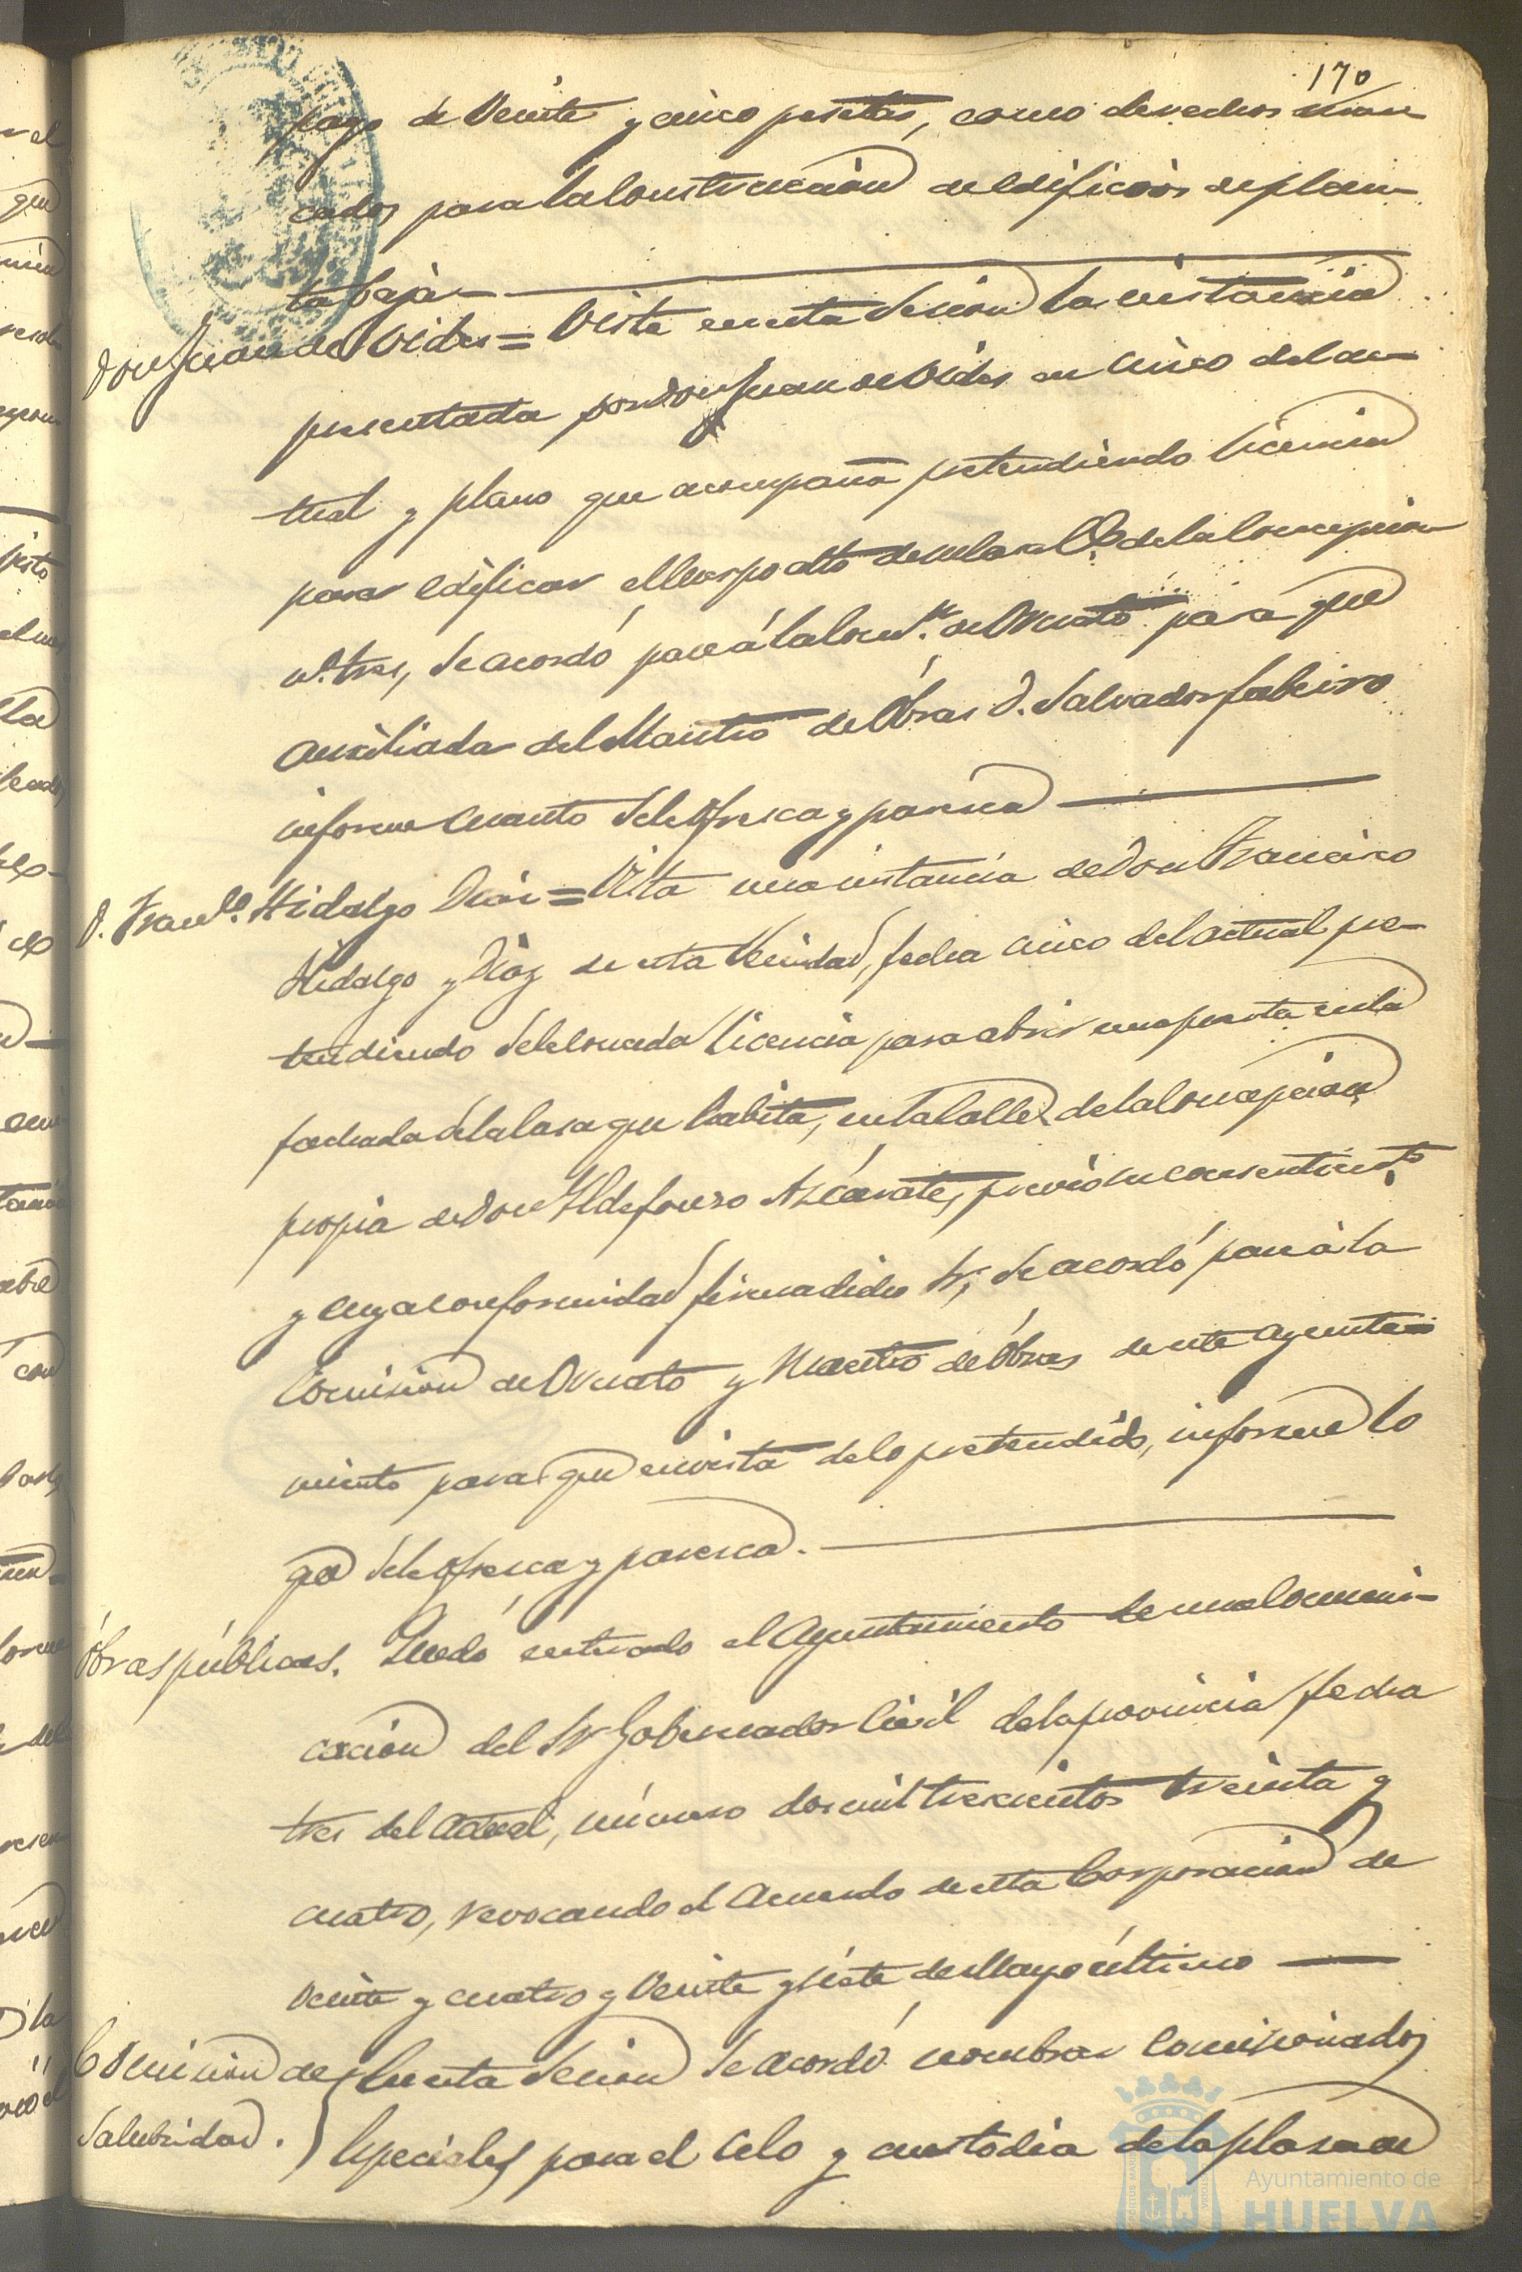 170
pago de veinte y cinco pesetas, como derechos mar
cados para la Construccion de edificios de plan-
ta baja.
Don Juan de Vides = Vista en esta Sesion la instancia
presentada por Don Juan de Vides en cinco del ac-
tual y plano que acompaña pretendiendo licencia
para edificar el Cuerpo alto de su Casa C.e de la Concepcion
n.º tres, Se acordó pase á la Com.n de Ornato para que
auxiliada del Maestro de Obras D. Salvador
informe cuanto Sele ofresca y paresca
D. Fran.co Hidalgo Dias = Vista una instancia de Don Francisco
Hidalgo y Diaz de esta Vecindad, fecha cinco del actual pre-
tendiendo Sele Conceda licencia para abrir una puerta en la
fachada de la Casa que habita, en la Calle de la Concepcion
propia de Don Ildefonso Azcárate, previo su consentim.to
y cuya conformidad firma dicho Sr, Se acordó pase á la
Comision de Ornato y Maestro de Obras de este Ayunta-
miento para que en vista de lo pretendido, informe lo
que Sele ofresca y paresca.
Obras públicas. Quedó enterado el Ayuntamiento de una Comuni-
cacion del Sr Gobernador Civil de la provincia fecha
tres del actual, número dos mil trescientos treinta y
cuatro, revocando el acuerdo de esta Corporacion de
veinte y cuatro y veinte y siete de Mayo último
Comision de En esta Sesion Se acordó nombrar Comisionados
Salubridad. Especiales para el celo y custodia de la plasa de
Ayuntamiento de
HUELVA